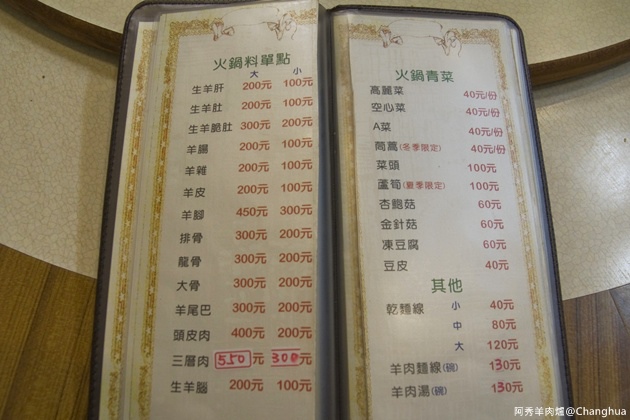 火鍋料單點
大 小
生羊肝 200元 100元
生羊肚 200元 100元
生羊脆肚 300元 200元
羊腸 200元 100元
羊雜 200元 100元
羊皮 200元 100元
羊腳 450元 300元
排骨 300元 200元
龍骨 300元 200元
大骨 300元 200元
羊尾巴 300元 200元
頭皮肉 400元 200元
三層肉 550元 300元
生羊腦 200元 100元
火鍋青菜
高麗菜 40元/份
空心菜 40元/份
A菜 40元/份
茼萵(冬季限定) 40元/份
菜頭 100元
蘆筍(夏季限定) 100元
杏鮑菇 60元
金針菇 60元
凍豆腐 60元
豆皮 40元
其他
乾麵線 小 40元
中 80元
大 120元
羊肉麵線(碗) 130元
羊肉湯(碗) 130元
阿秀羊肉爐@Changhua